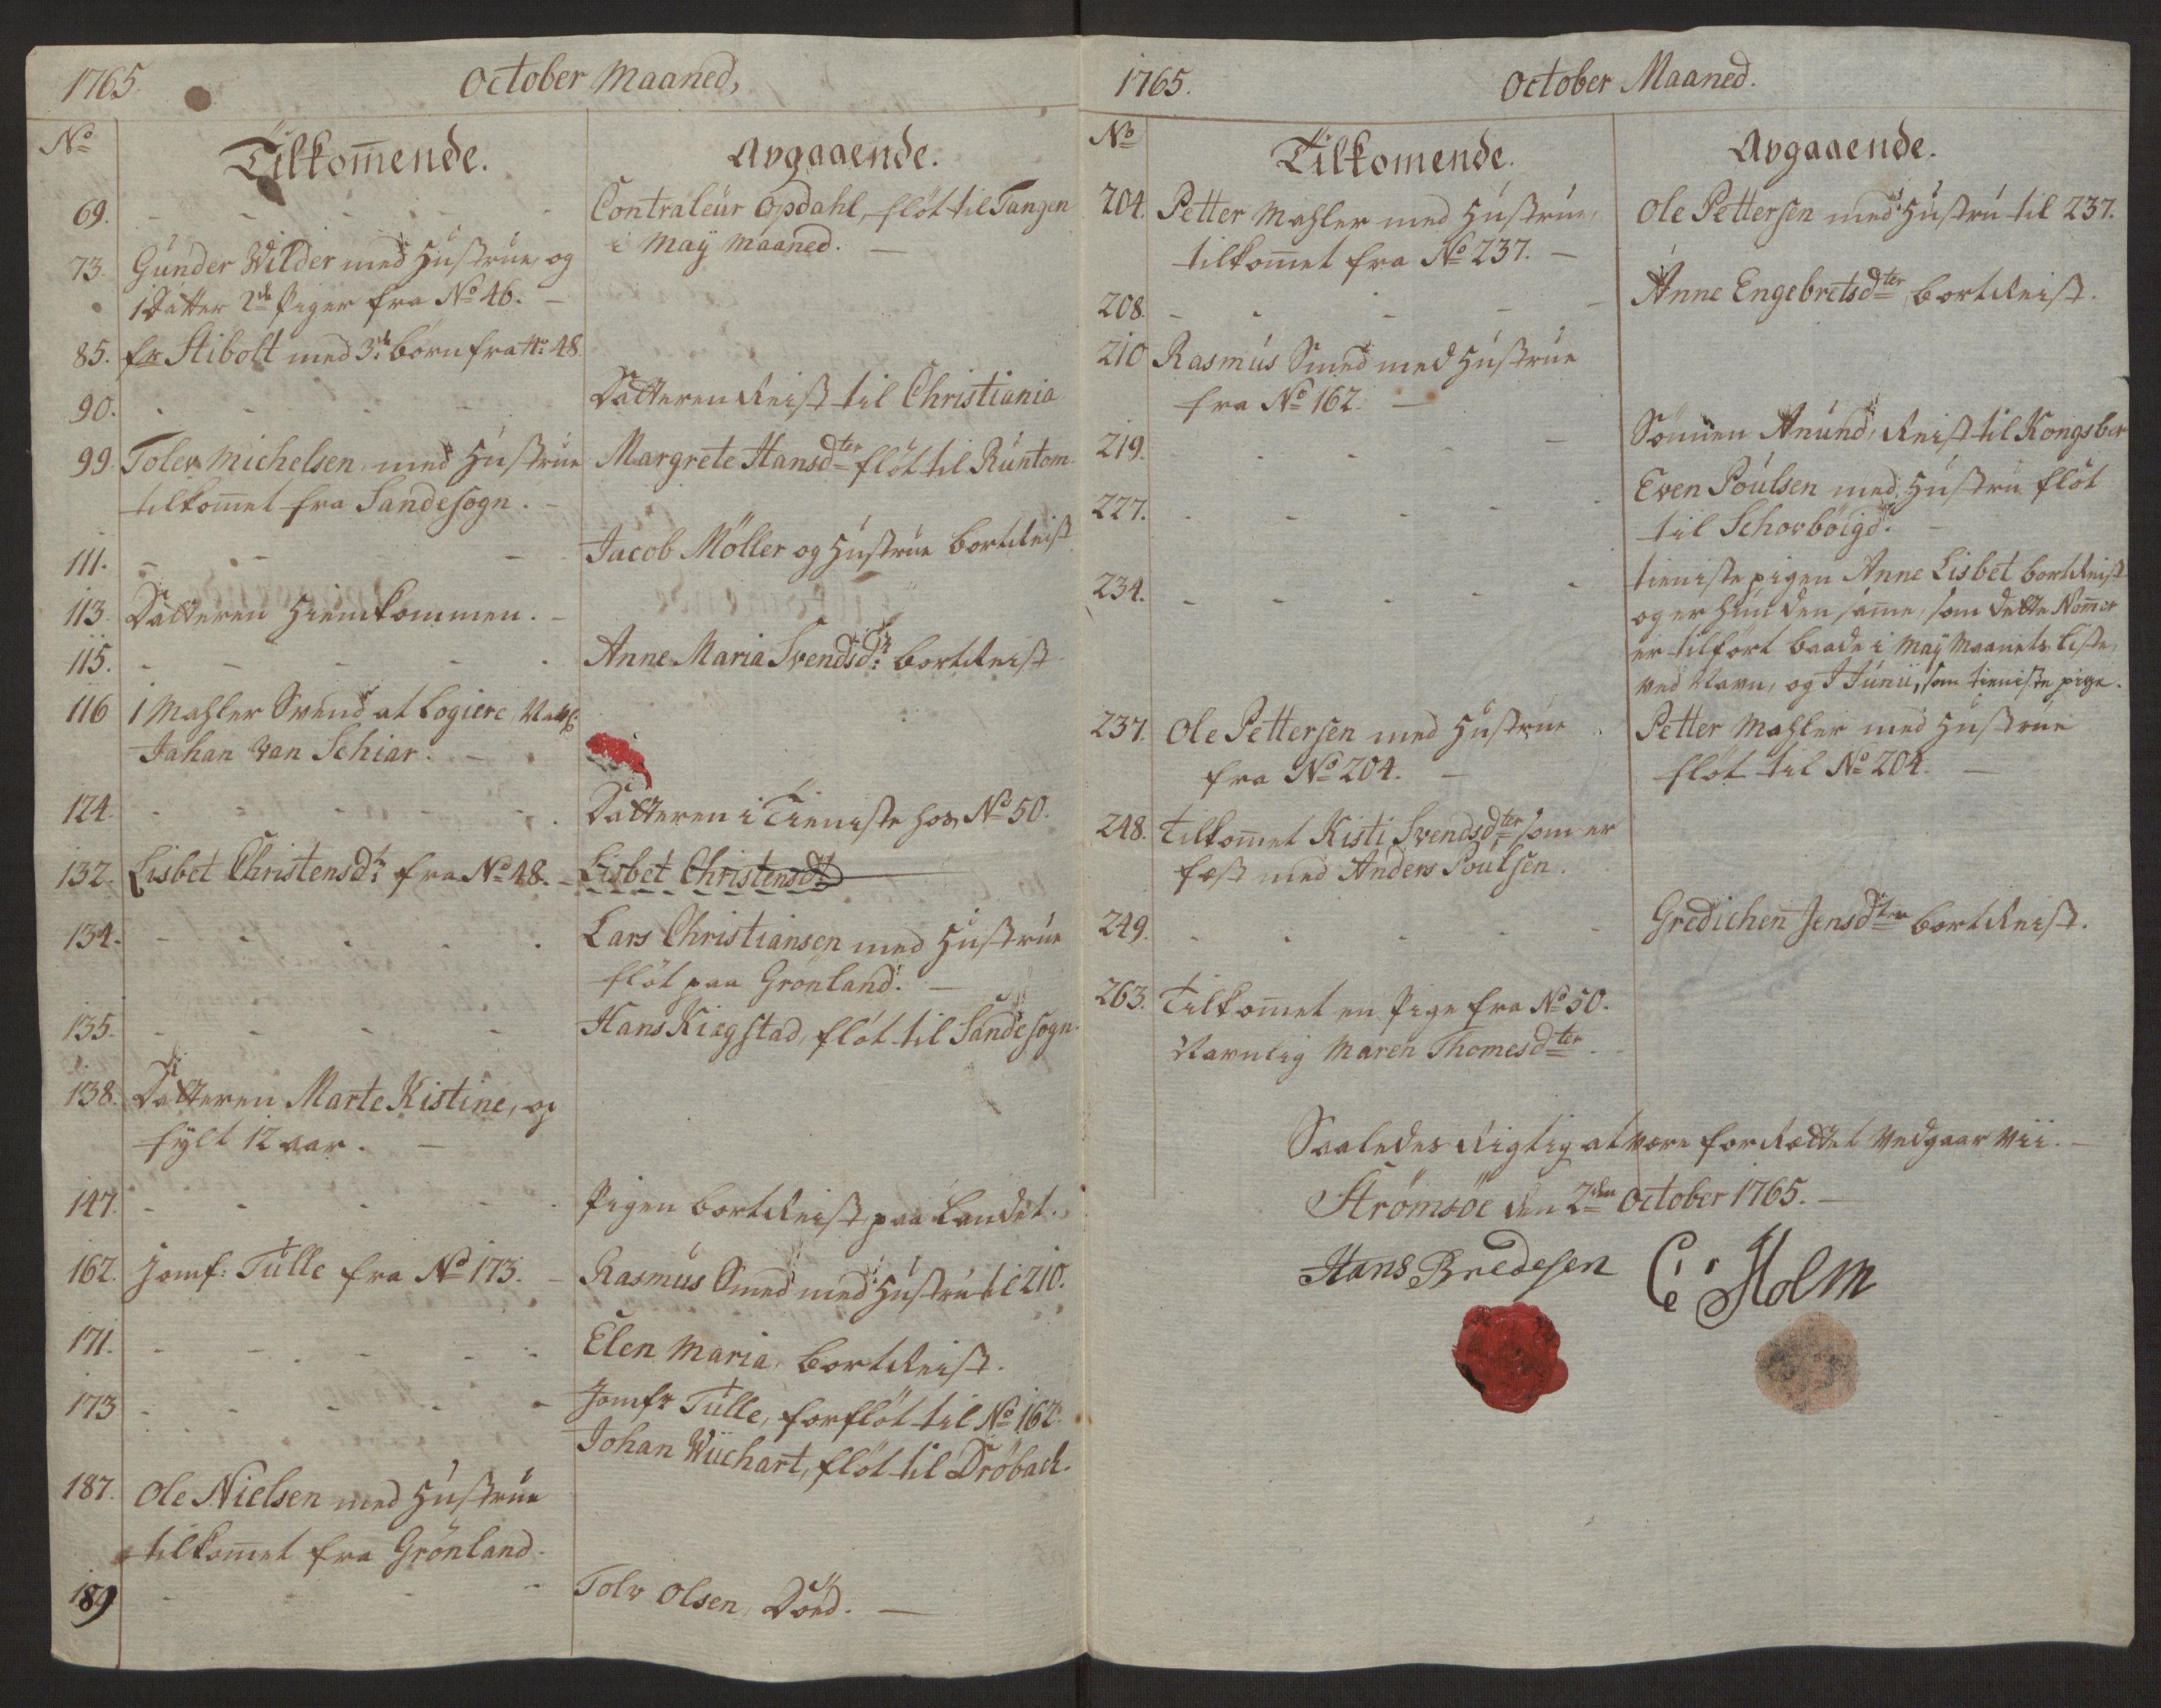 1765. October Maaned,
No Tilkommende. Avgaaende.
69. - - - - - Contraleur Opdahl, fløt til Tangen
i Maÿ Maaned. -
73. Gunder Wilder med Hustrue, og
1 Datter 2de Piger fra No 46. -
85. fr Stibolt med 3de børn fra No: 48
90. - - - - Datteren Reist til Christiania
99. Tolev Michelsen, med Hustrue
tilkommet fra Sandesogn. -
Margrete Hansdter fløt til Runtom.
111. - - - Jacob Möller og Hustrue bortReist
113. Datteren Hiemkommen. -
115. - - - - - Anne Maria Svendsdr: bortReist
116 1 Mahler Svend at Logiere, Navl:
Jahan Van Schiar. -
124. - - - - - Datteren i Tieniste hos No 50.
132. Lisbet Christensdr: fra No 48. - Lisbet Christensdr
134. - - - - - Lars Christiansen med Hustrue
fløt paa Grönland. -
135. - - - - Hans Kiegstad, fløt til Sandesogn.
138. Datteren Marte Kistine, og
fÿlt 12 aar. -
147. - - - - - Pigen bortReist, paa Landet.
162. Jomf: Tülle fra No 173. - Rasmus Smed med Hustru til 210.
171. - - - - - Elen Maria, bortReist.
173 - - - - - Jomfr Tulle, forfløt til No 162.
Johan Wüchart, fløt til Dröbach.
187. Ole Nielsen med Hustrue
tilkommet fra Grönland.
189 - - - Tolv Olsen, Död. -
1765. October Maaned.
No Tilkomende. Avgaaende.
204. Petter Mahler med Hustrue,
tilkommet fra No 237. -
Ole Pettersen med Hustru til 237.
208. - - - - - Anne Engebretsdter bortReist.
210 Rasmus Smed med Hustrue
fra No 162. -
219. - - - - Sønnen Anund, Reist til Kongsber
227. - - - - - Even Poulsen med Hustru fløt
til Schovböigd. -
234. - - - - - tieniste pigen Anne Lisbet bortReist
og er hun den samme, som dette Nommer
er tilført baade i Maÿ Maanets Liste,
ved Navn, og I Junii, som tieniste pige.
237. Ole Pettersen med Hustrue
fra No 204. -
Petter Mahler med Hustrue
fløt til No 204. -
248. Tilkommet Kisti Svendsdter som er
fæst med Anders Poulsen.
249. - - - - - Gredichen Jensdter bortReist.
263. Tilkommet en Pige fra No 50.
Navnlig Maren Thomesdter.
Saaledes Rigtig at være forRættet Vedgaar Vii. -
Strömsöe den 2den October 1765. -
Hans Bredesen C: Holm